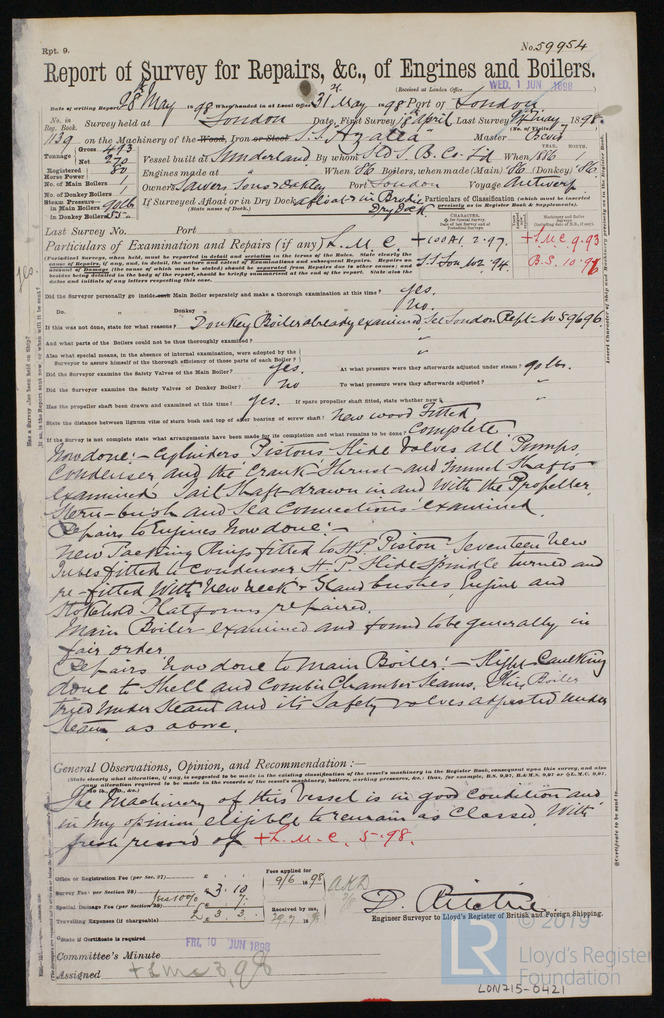 Rpt. 9.
No. 59954
Report of Survey for Repairs, &c., of Engines and Boilers.
(Received at London Office WED. 1 JUN 1898 )
Date of writing Report 28 May 1898 When handed in at Local Office 31st May 1898 Port of London
No. in Reg. Book. Survey held at London Date, First Survey 18 April Last Survey May 1898
(No. of Visits 7 )
1139 on the Machinery of the Wood, Iron or Steel S.S. "Azalea" Master
Tonnage Gross 443 Net 270
Vessel built at Sunderland By whom S. B. Co. Ld When 1886 1
YEAR. MONTH.
Registered Horse Power 80
Engines made at " When 86 Boilers, when made (Main) 86 (Donkey) 86
No. of Main Boilers 1
No. of Donkey Boilers 1
Owners Sawers, Sons & Oakley Port London Voyage Antwerp
Steam Pressure in Main Boilers 90 lb
in Donkey Boilers 55
If Surveyed Afloat or in Dry Dock afloat & in Brodie Dry Dock
(State name of Dock.)
Particulars of Classification (which must be inserted precisely as in Register Book & Supplements).
Last Survey No. Port
Particulars of Examination and Repairs (if any) L. M. C. +100A1. 2.97. +L.M.C. 9.93
S.S. Lon No2. 94. B.S. 10.96
(Periodical Surveys, when held, must be reported in detail and seriatim in the terms of the Rules. State clearly the
Did the Surveyor personally go inside each Main Boiler separately and make a thorough examination at this time? Yes.
Do. " Donkey " " " " No.
If this was not done, state for what reasons? Donkey Boiler already examined See London Rept. No 59696.
And what parts of the Boilers could not be thus thoroughly examined? "
Also what special means, in the absence of internal examination, were adopted by the Surveyor to assure himself of the thorough efficiency of those parts of each Boiler? "
Did the Surveyor examine the Safety Valves of the Main Boiler? Yes. At what pressure were they afterwards adjusted under steam? 90 lbs.
Did the Surveyor examine the Safety Valves of Donkey Boiler? No To what pressure were they afterwards adjusted? "
Has the propeller shaft been drawn and examined at this time? Yes. If spare propeller shaft fitted, state whether new? "
State the distance between lignum vitæ of stern bush and top of after bearing of screw shaft? New wood Fitted
If the Survey is not complete state what arrangements have been made for its completion and what remains to be done? Complete.
Now done:- Cylinders Pistons Slide Valves all Pumps,
Condenser and the Crank Thrust and Tunnel Shafts
examined Tail Shaft drawn in and With the Propeller,
Stern-bush and Sea Connections examined.
Repairs to Engines Now done:-
New Packing Rings fitted to H.P. Piston Seventeen New
Tubes fitted to Condenser H. P. Slide Spindle turned and
re-fitted With New Neck & Gland bushes, Engine and
Stokehold Platforms repaired.
Main Boiler examined and found to be generally in
fair order
Repairs Now done to Main Boiler:- Slight Caulking
done to Shell and Combn Chamber Seams. This Boiler
tried Under Steam and its Safety Valves adjusted Under
Steam as above.
General Observations, Opinion, and Recommendation:—
(State clearly what alteration, if any, is suggested to be made in the existing classification of the vessel's machinery in the Register Book, consequent upon this survey, and also
any alteration required to be made in the records of the vessel's machinery, boilers, working pressures, &c.: thus, for example, B.S. 9,97, B.&M.S. 9,97 or +L.M.C. 9,97,
The Machinery of this Vessel is in good Condition and
in my opinion eligible to remain as Classed With
fresh record of +L. M. C. 5.98.
Office or Registration Fee (per Sec. 27)
Survey Fee (per Section 28) £ 3. 10
less 10% 7.
Special Damage Fee (per Section 28)
£ 3. 3.
Travelling Expenses (if chargeable)
Fees applied for 9/6 1898
Received by me,
D. Ritchie
Engineer Surveyor to Lloyd's Register of British and Foreign Shipping.
State if Certificate is required
FRI. 10 JUN 1898
Committee's Minute
Assigned + L M C 5,98
© 2019
LR
Lloyd's Register
Foundation
LON715-0421